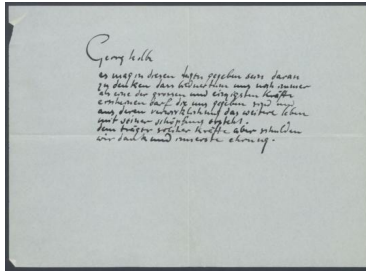 Georg Kolbe
es mag in diesen tagen gegeben sein daran
zu denken dass bildnertum uns noch immer
als eine der grossen und einzigsten kräfte
erscheinen darf die uns gegeben sind und
aus deren verwirklichung das weitere leben
mit seiner schöpfung ersteht.
dem träger solcher kräfte aber schulden
wir dank und unserste ehrung.